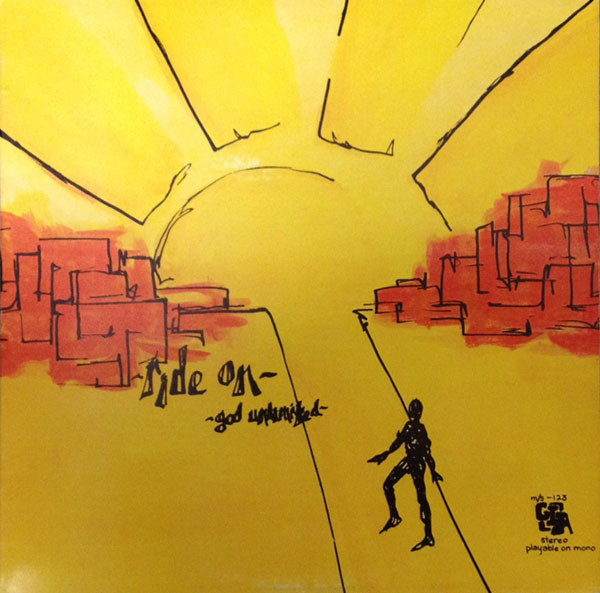 -ride on-
~god unlimited~
m/s-123
GIA
stereo
playable on mono